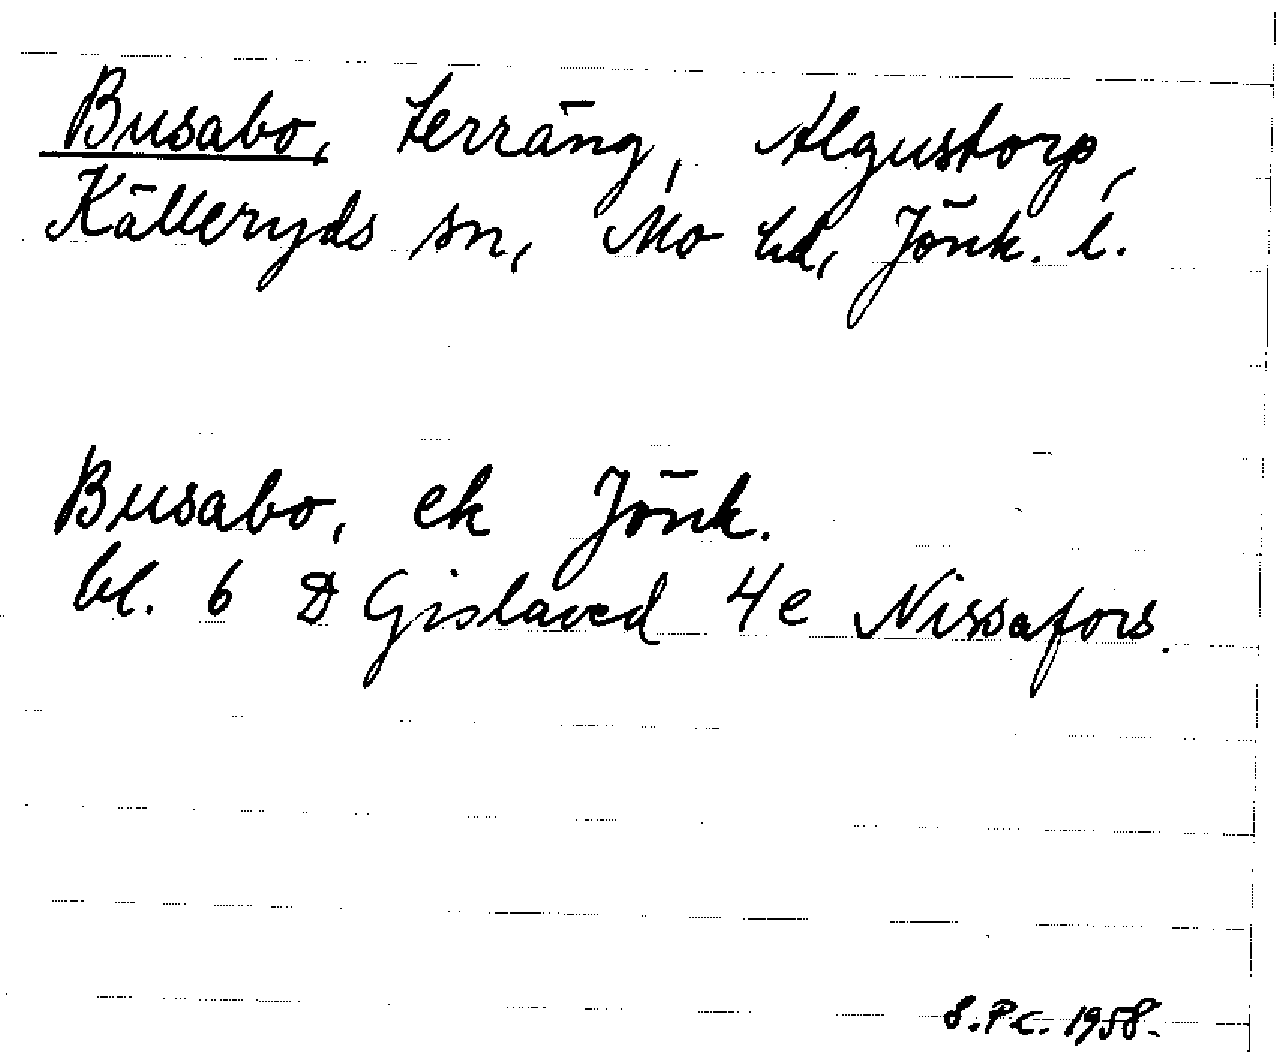 Busabo, terräng, Algustorp,
Källeryds sn, Mo hd, Jönk. l.
Busabo, ek Jönk.
bl. 6 D Gislaved 4e Nissafors.
S.P.C. 1958.